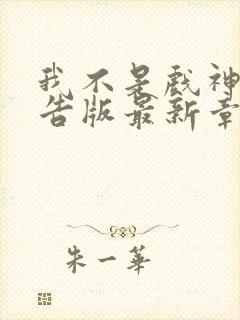 我不是戏神
告版最新章
朱一華